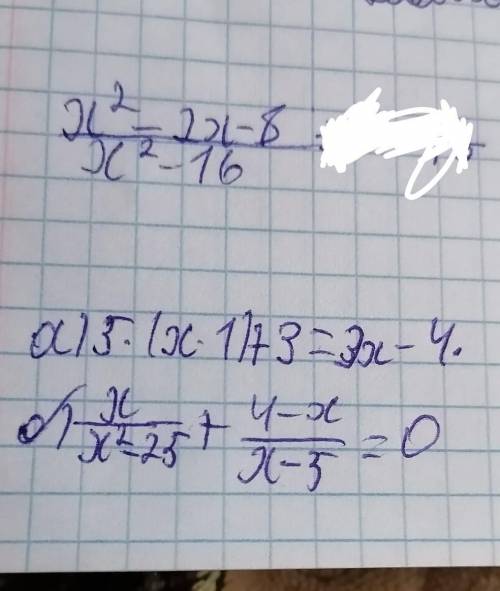 x² - 2x - 8 / x² - 16 =
а) 5·(x·1)+3=3x-4.
б) x / x²-25 + 4-x / x-5 = 0